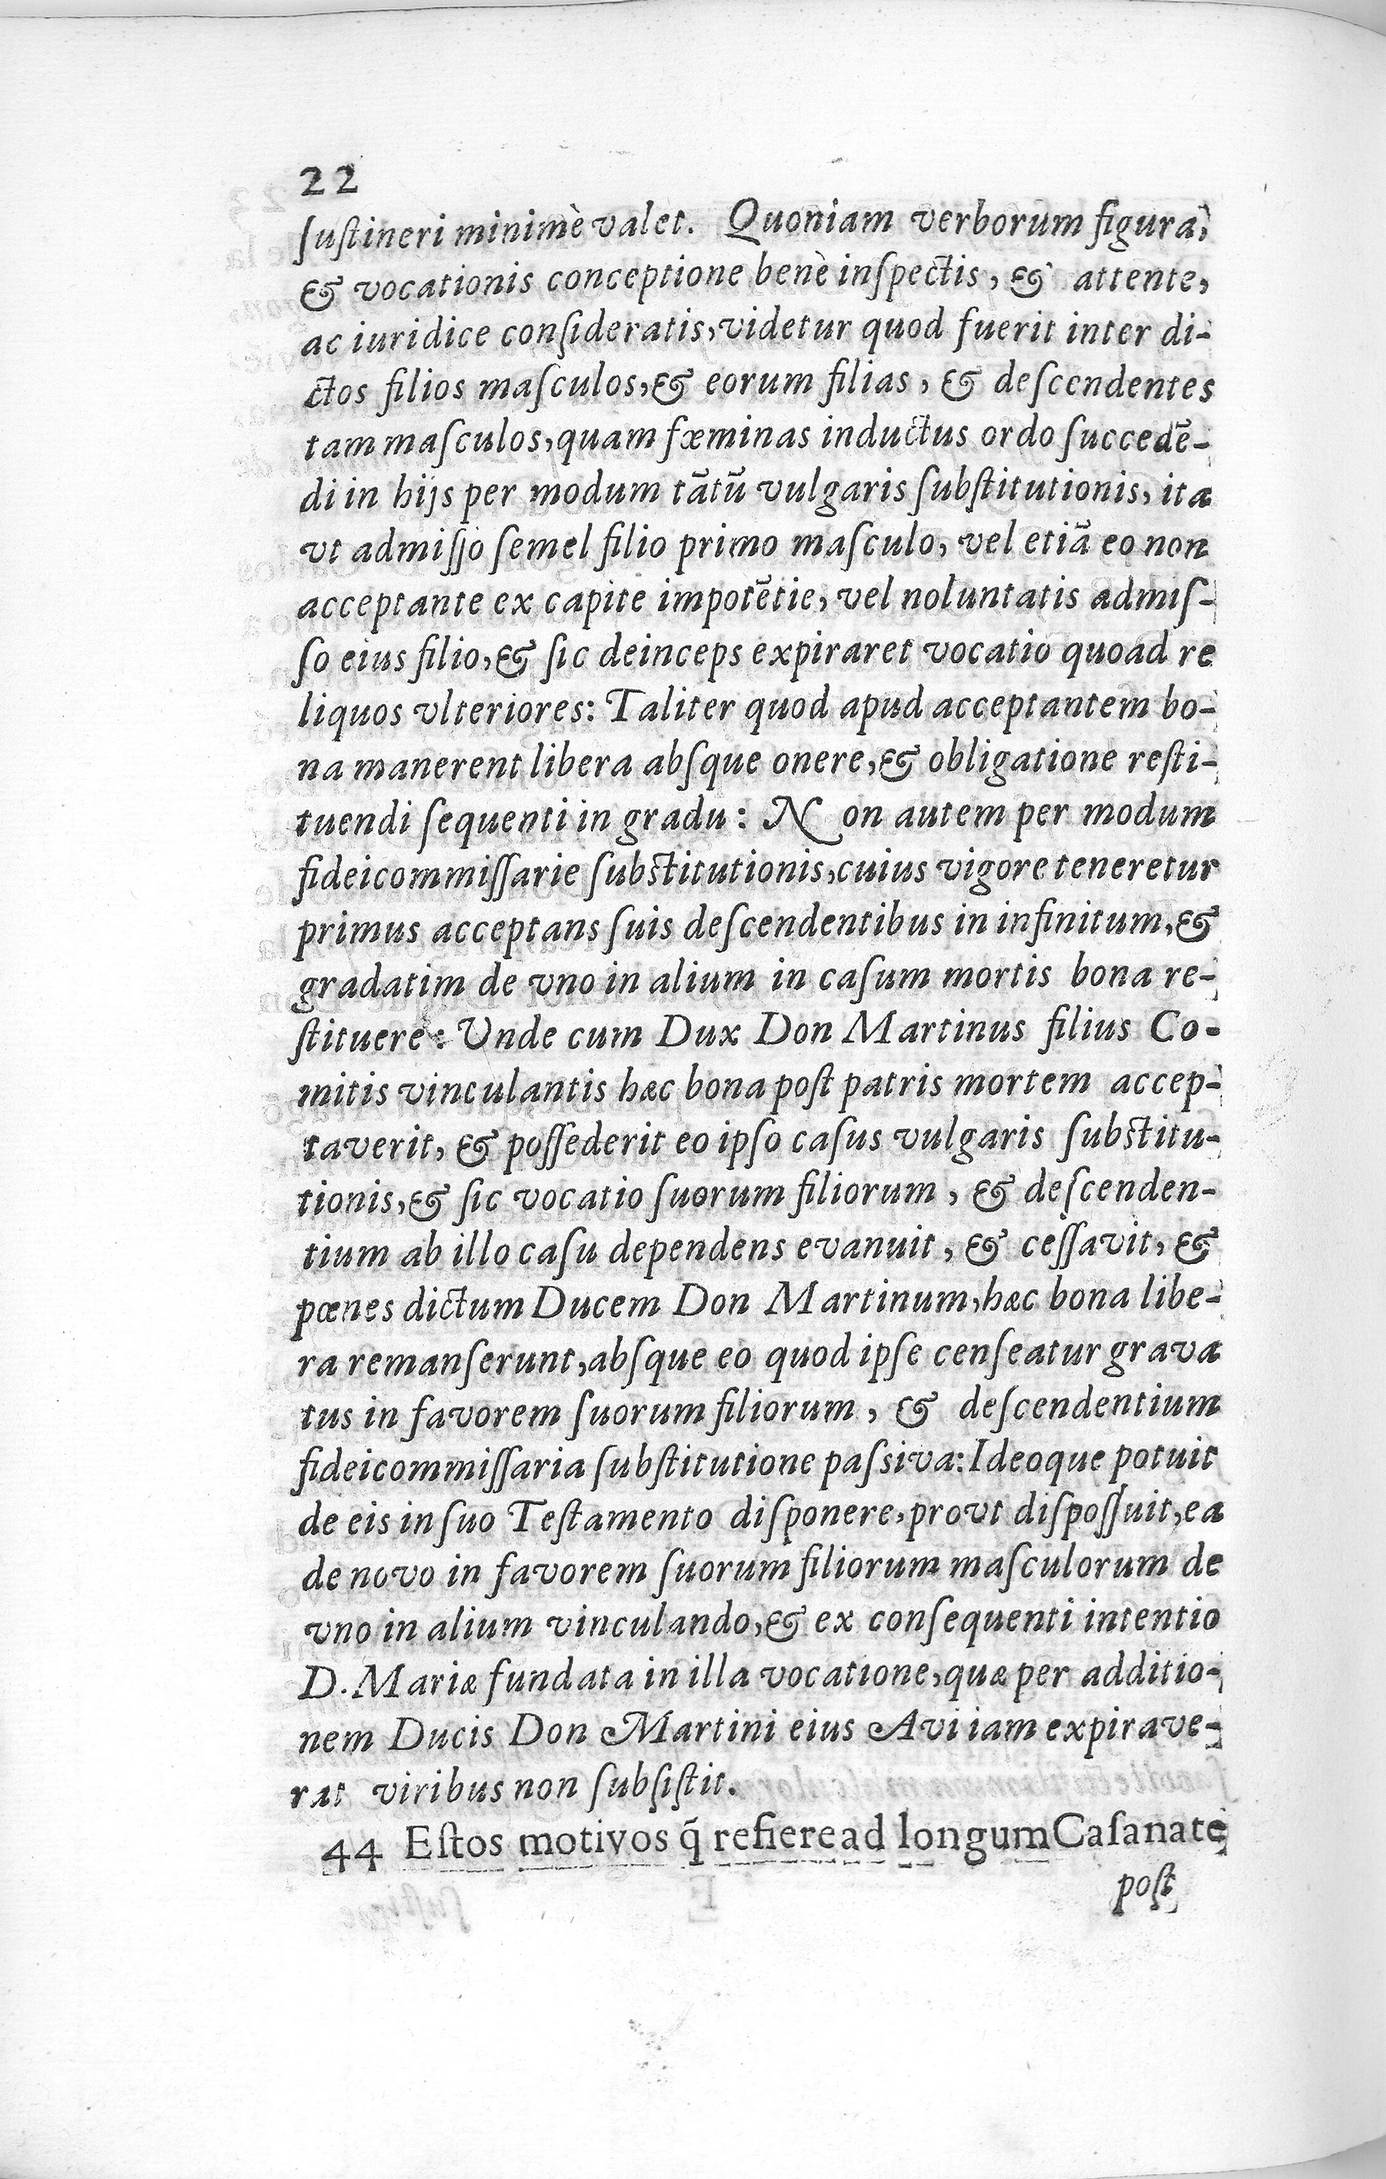 22
ſuſtineri minimè valet. Quoniam verborum figura,
& vocationis conceptione benè inſpectis, & attente,
ac iuridice conſideratis, videtur quod fuerit inter di-
ctos filios maſculos, & eorum filias, & deſcendentes
tam maſculos, quam fœminas inductus ordo ſuccedē-
di in hijs per modum tātū vulgaris ſubſtitutionis, ita
vt admiſſo ſemel filio primo maſculo, vel etiā eo non
acceptante ex capite impotētie, vel noluntatis admiſ-
ſo eius filio, & ſic deinceps expiraret vocatio quoad re
liquos vlteriores: Taliter quod apud acceptantem bo-
na manerent libera abſque onere, & obligatione reſti-
tuendi ſequenti in gradu: Non autem per modum
fideicommiſſarie ſubſtitutionis, cuius vigore teneretur
primus acceptans ſuis deſcendentibus in infinitum, &
gradatim de vno in alium in caſum mortis bona re-
ſtituere: Unde cum Dux Don Martinus filius Co-
mitis vinculantis hæc bona poſt patris mortem accep-
taverit, & poſſederit eo ipſo caſus vulgaris ſubſtitu-
tionis, & ſic vocatio ſuorum filiorum, & deſcenden-
tium ab illo caſu dependens evanuit, & ceſſavit, &
pœnes dictum Ducem Don Martinum, hæc bona libe-
ra remanſerunt, abſque eo quod ipſe cenſeatur grava
tus in favorem ſuorum filiorum, & deſcendentium
fideicommiſſaria ſubſtitutione paſsiva: Ideoque potuit
de eis in ſuo Teſtamento diſponere, provt diſpoſſuit, ea
de novo in favorem ſuorum filiorum maſculorum de
vno in alium vinculando, & ex conſequenti intentio
D. Mariæ fundata in illa vocatione, quæ per additio-
nem Ducis Don Martini eius Avi iam expirave-
rat viribus non ſubſiſtit.
44 Eſtos motivos q̃ refiere ad longum Caſanate
poſt